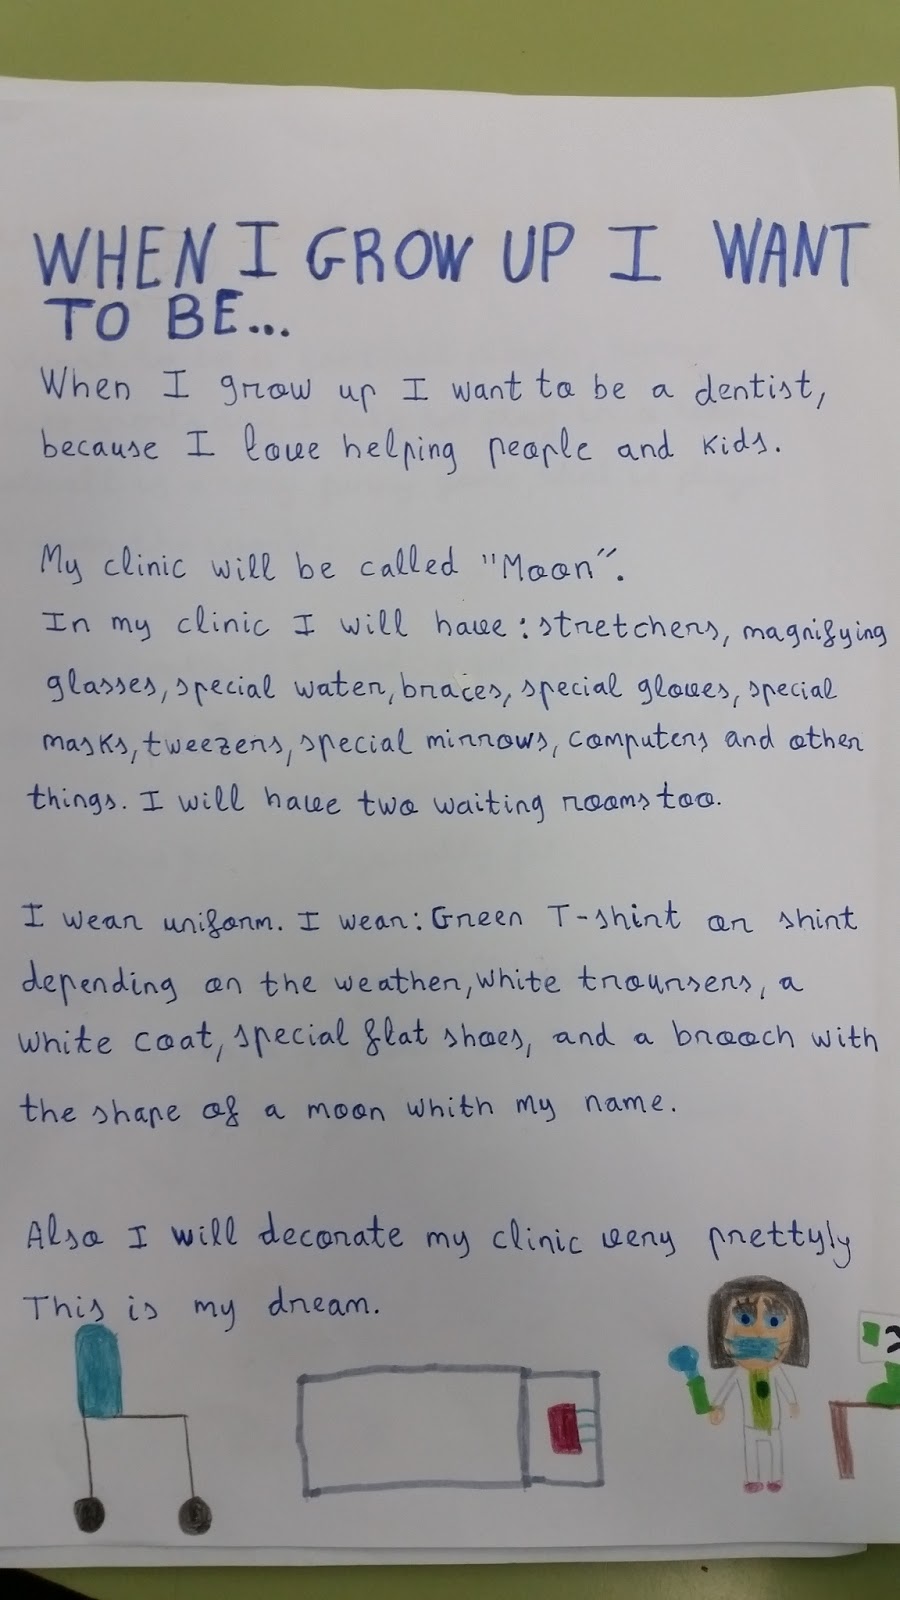 WHEN I GROW UP I WANT
TO BE...
When I grow up I want to be a dentist,
because I love helping people and kids.
My clinic will be called "Moon".
In my clinic I will have: stretchers, magnifying
glasses, special water, braces, special gloves, special
masks, tweezers, special mirrows, computers and other
things. I will have two waiting rooms too.
I wear uniform. I wear: Green T-shirt or shirt
depending on the weather, white troursers, a
white coat, special flat shoes, and a brooch with
the shape of a moon whith my name.
Also I will decorate my clinic very prettyly
This is my dream.